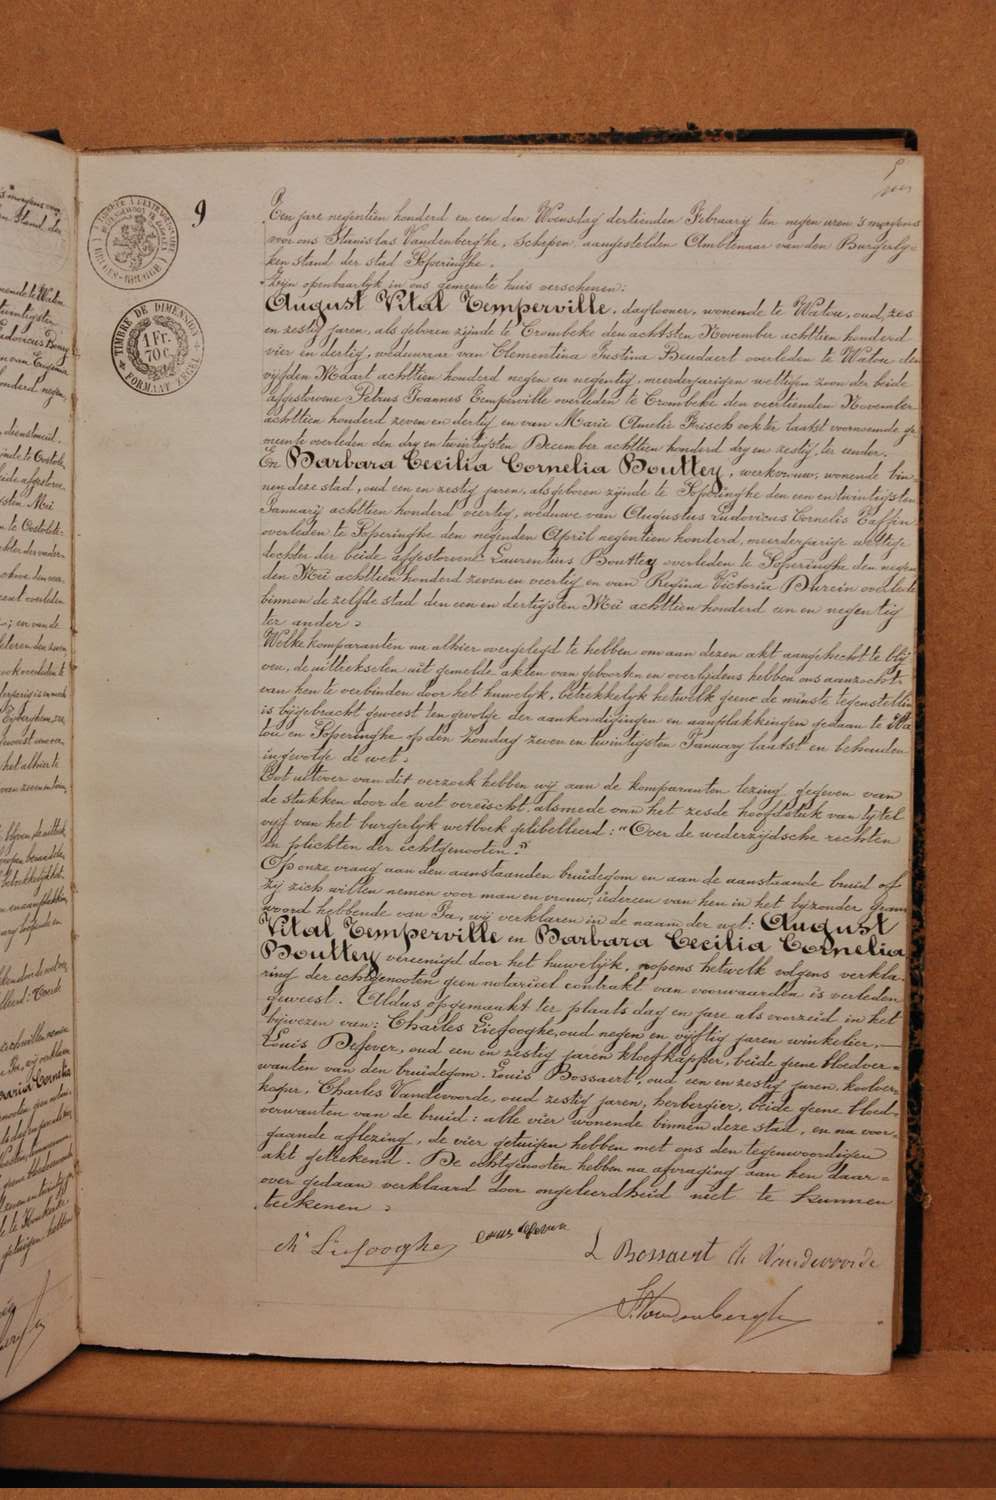 9
TIMBRE DE DIMENSION
1 Fr.
70 c.
FORMAAT ZEGEL
Een jare negentien honderd en een den Woensdag dertienden Februarij ten negen uren 's morgens
voor ons Stanislas Vandenberghe, Schepen, aangestelden Ambtenaar van den Burgerly-
ken stand der stad Poperinghe.
Zijn openbaarlyk in ons gemeente huis verschenen:
August Vital Temperville, daglooner, wonende te Watou, oud, zes
en zestig jaren, als geboren zijnde te Crombeke den achtsten November achttien honderd
vier en dertig, weduwaar van Clementina Justina Beudaert overleden te Watou den
vijfden Maart achttien honderd negen en negentig, meerderjarigen wettigen zoon der beide
afgestorvene Petrus Joannes Temperville overleden te Crombeke den veertienden November
achttien honderd zeven en dertig en van Marie Amelie Frisch ook ter laatst voornoemde ge
meente overleden den dry en twintigsten December achttien honderd dry en zestig, ter eender.
En Barbara Cecilia Cornelia Bouttey, werkvrouw, wonende bin-
nen deze stad, oud een en zestig jaren, als geboren zijnde te Poperinghe den een en twintigsten
Januarij achttien honderd veertig, weduwe van Augustus Ludovicus Cornelis Taffin
overleden te Poperinghe den negenden April negentien honderd, meerderjarige wettige
dochter der beide afgestorvene Laurentius Bouttey overleden te Poperinghe den negen
den Mei achttien honderd zeven en veertig en van Regina Victoria Durein overleden
binnen de zelfde stad den een en dertigsten Mei achttien honderd een en negentig
ter ander.
Welke komparanten na alhier overgelegd te hebben om aan dezen akt aangehecht te blij
ven, de uittrekselen uit gemelde akten van geboorten en overlijdens hebben ons aanzocht
van hen te verbinden door het huwelyk, betrekkelyk hetwelk geene de minste tegenstelling
is bijgebracht geweest ten gevolge der aankondigingen en aanplakkingen gedaan te Wa
tou en Poperinghe op den Zondag zeven en twintigsten January laatst en behouden
ingevolge de wet.
Tot uitvoer van dit verzoek hebben wij aan de komparanten lezing gegeven van
de stukken door de wet vereischt, alsmede van het zesde hoofdstuk van tytel
vijf van het burgerlyk wetboek getibelleerd: "Over de wederzijdsche rechten
en plichten der echtgenooten."
Op onze vraag aan den aanstaanden bruidegom en aan de aanstaande bruid of
zij zich willen nemen voor man en vrouw, iedereen van hen in het bijzonder geant
woord hebbende van Ja, wij verklaren in de naam der wet: August
Vital Temperville en Barbara Cecilia Cornelia
Bouttey vereenigd door het huwelijk, nopens hetwelk volgens verkla-
ring der echtgenooten geen notarieel contrakt van voorwaarden is verleden
geweest. Aldus opgemaakt ter plaats dag en jare als voorzeid in het
bijwezen van: Charles Liefooghe, oud negen en vijftig jaren winkelier,
Louis Desever, oud een en zestig jaren kloefkapper, beide geene bloedver-
wanten van den bruidegom. Louis Bossaert, oud een en zestig jaren, koolver-
koper, Charles Vandevoorde, oud zestig jaren, herbergier, beide geene bloed-
verwanten van de bruid: alle vier wonende binnen deze stad, en na voor-
gaande aflezing, de vier getuigen hebben met ons den tegenwoordigen
akt geteekend. De echtgenooten hebben na afvraging aan hen daar-
over gedaan verklaard door ongeleerdheid niet te kunnen
teekenen.
Ch Liefooghe
Louis Desever
L Bossaert Ch Vandevoorde
S. Vandenberghe